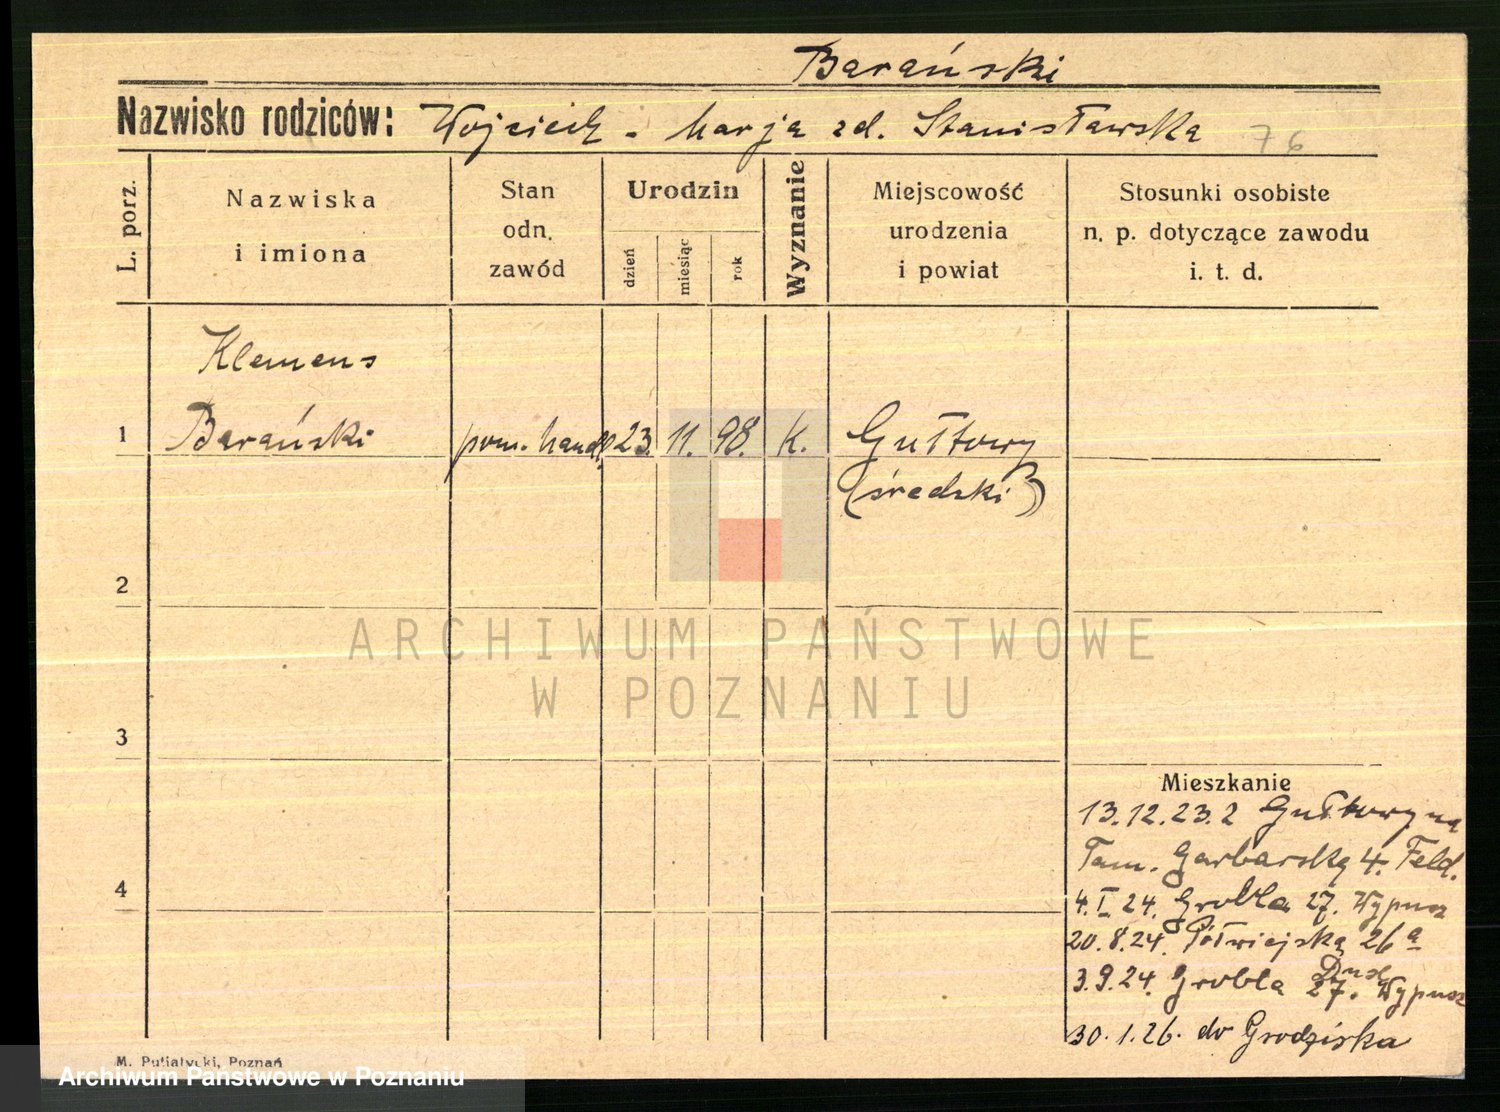 Barański
Nazwisko rodziców: Wojciech - Marja zd. Stanisławska 76
L. porz.
Nazwiska
i imiona
Stan
odn.
zawód
Urodzin
dzień
miesiąc
rok
Wyznanie
Miejscowość
urodzenia
i powiat
Stosunki osobiste
n. p. dotyczące zawodu
i. t. d.
Klemens
1 Barański pom. handl. 23. 11. 98. K. Gułtowy
(średzki)
2
ARCHIWUM PAŃSTWOWE
W POZNANIU
3
Mieszkanie
13.12.23. z Gułtowy na
Tam. Garbarską 4. Feld.
4
4.I 24. Grobla 27. Wypusz
20.8.24. Półwiejska 26a
3.9.24. Grobla 27. Wypusz
30.1.26. do Grodziska
M. Putiatycki, Poznań
Archiwum Państwowe w Poznaniu